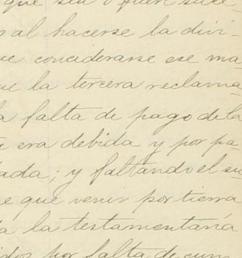 que sea o quien suce
al hacerse la divi-
ue conciderarse ese ma
ue la tercera reclama
la falta de pago de la
e era debida y por pa
ada; y faltando el su
e que venir por tierra
da la testamentaría
idos por falta de cum